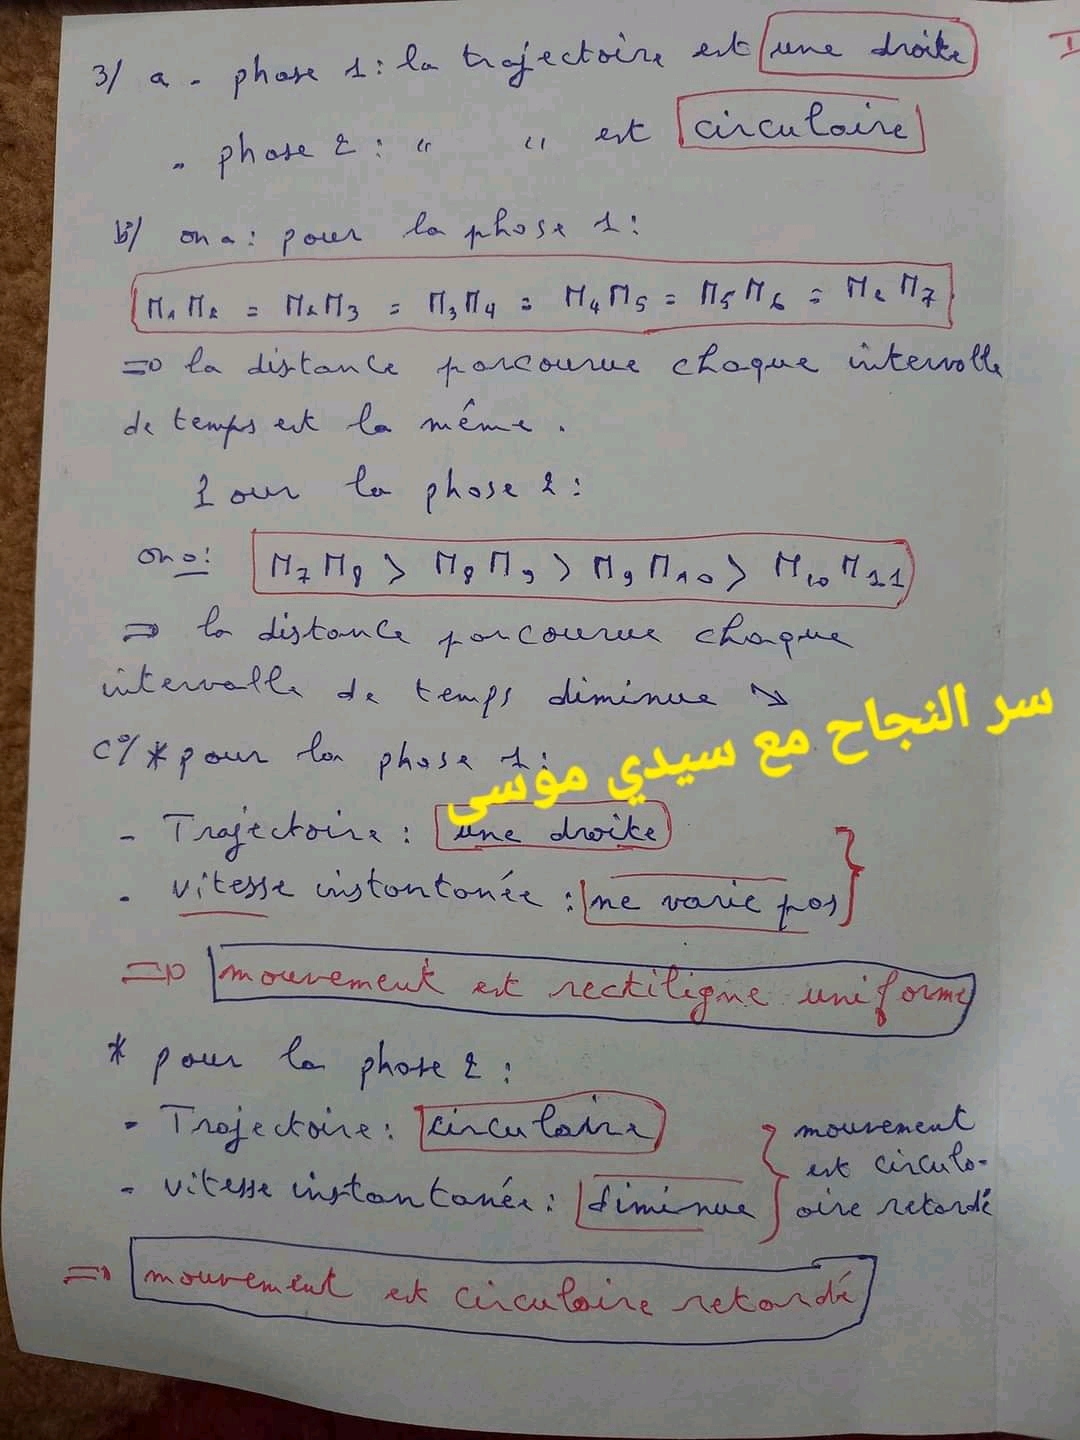 3/ a - phase 1 : la trajectoire est une droite
- phase 2 : " " est circulaire
b/ on a : pour la phase 1 :
M1M2 = M2M3 = M3M4 = M4M5 = M5M6 = M6M7
=> la distance parcourue chaque intervalle
de temps est la même .
Pour la phase 2 :
on a : M7M8 > M8M9 > M9M10 > M10M11
=> la distance parcourue chaque
intervalle de temps diminue ↘
سر النجاح مع سيدي موسى
c°/ * pour la phase 1 :
- Trajectoire : une droite
- vitesse instantanée : ne varie pas
=> mouvement est rectiligne uniforme
* pour la phase 2 :
- Trajectoire : circulaire
- vitesse instantanée : diminue
mouvement
est circula-
aire retardé
=> mouvement est circulaire retardé